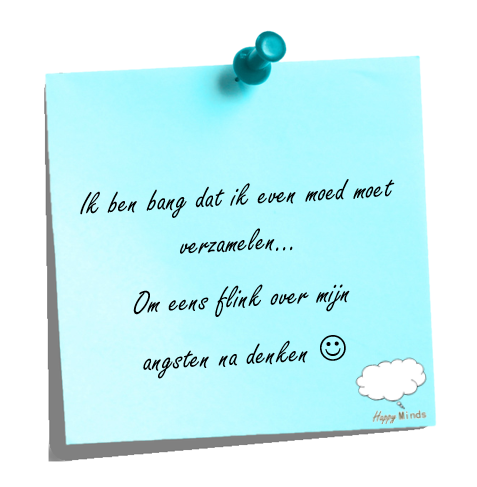 Ik ben bang dat ik even moed moet
verzamelen...
Om eens flink over mijn
angsten na denken ☺
Happy Minds